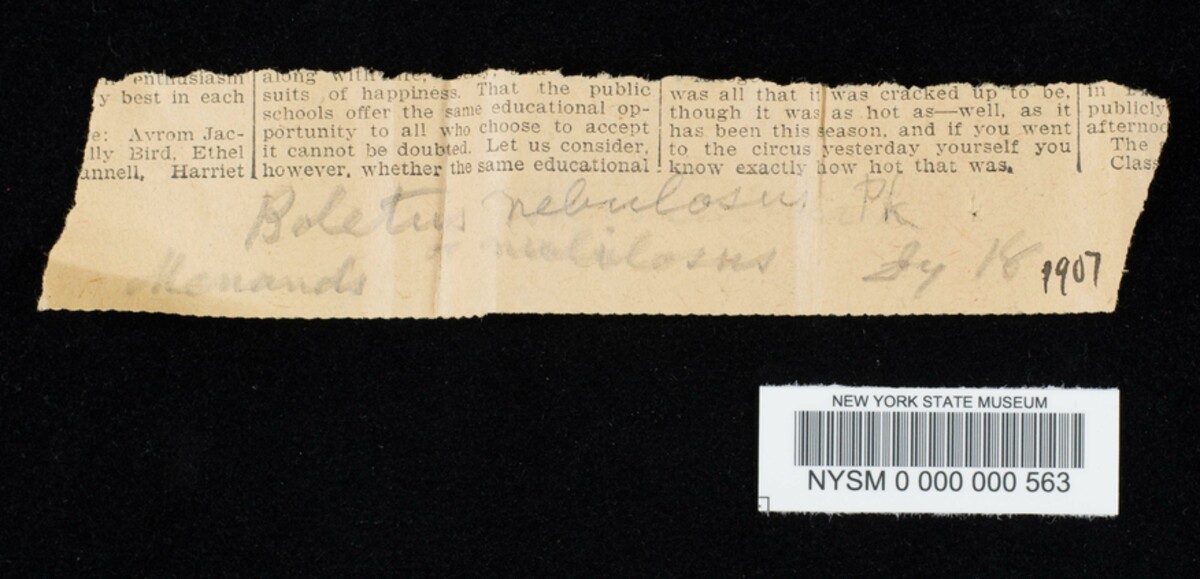 enthusiasm
y best in each
e: Avrom Jac-
lly Bird, Ethel
annell, Harriet
along with
suits of happiness. That the public
schools offer the same educational op-
portunity to all who choose to accept
it cannot be doubted. Let us consider,
however, whether the same educational
was all that it was cracked up to be,
though it was as hot as—well, as it
has been this season, and if you went
to the circus yesterday yourself you
know exactly how hot that was.
in
publicly
afternoo
The
Class
Boletus nebulosus Pk
nubilosus
Menands Jy 18 1907
NEW YORK STATE MUSEUM
NYSM 0 000 000 563